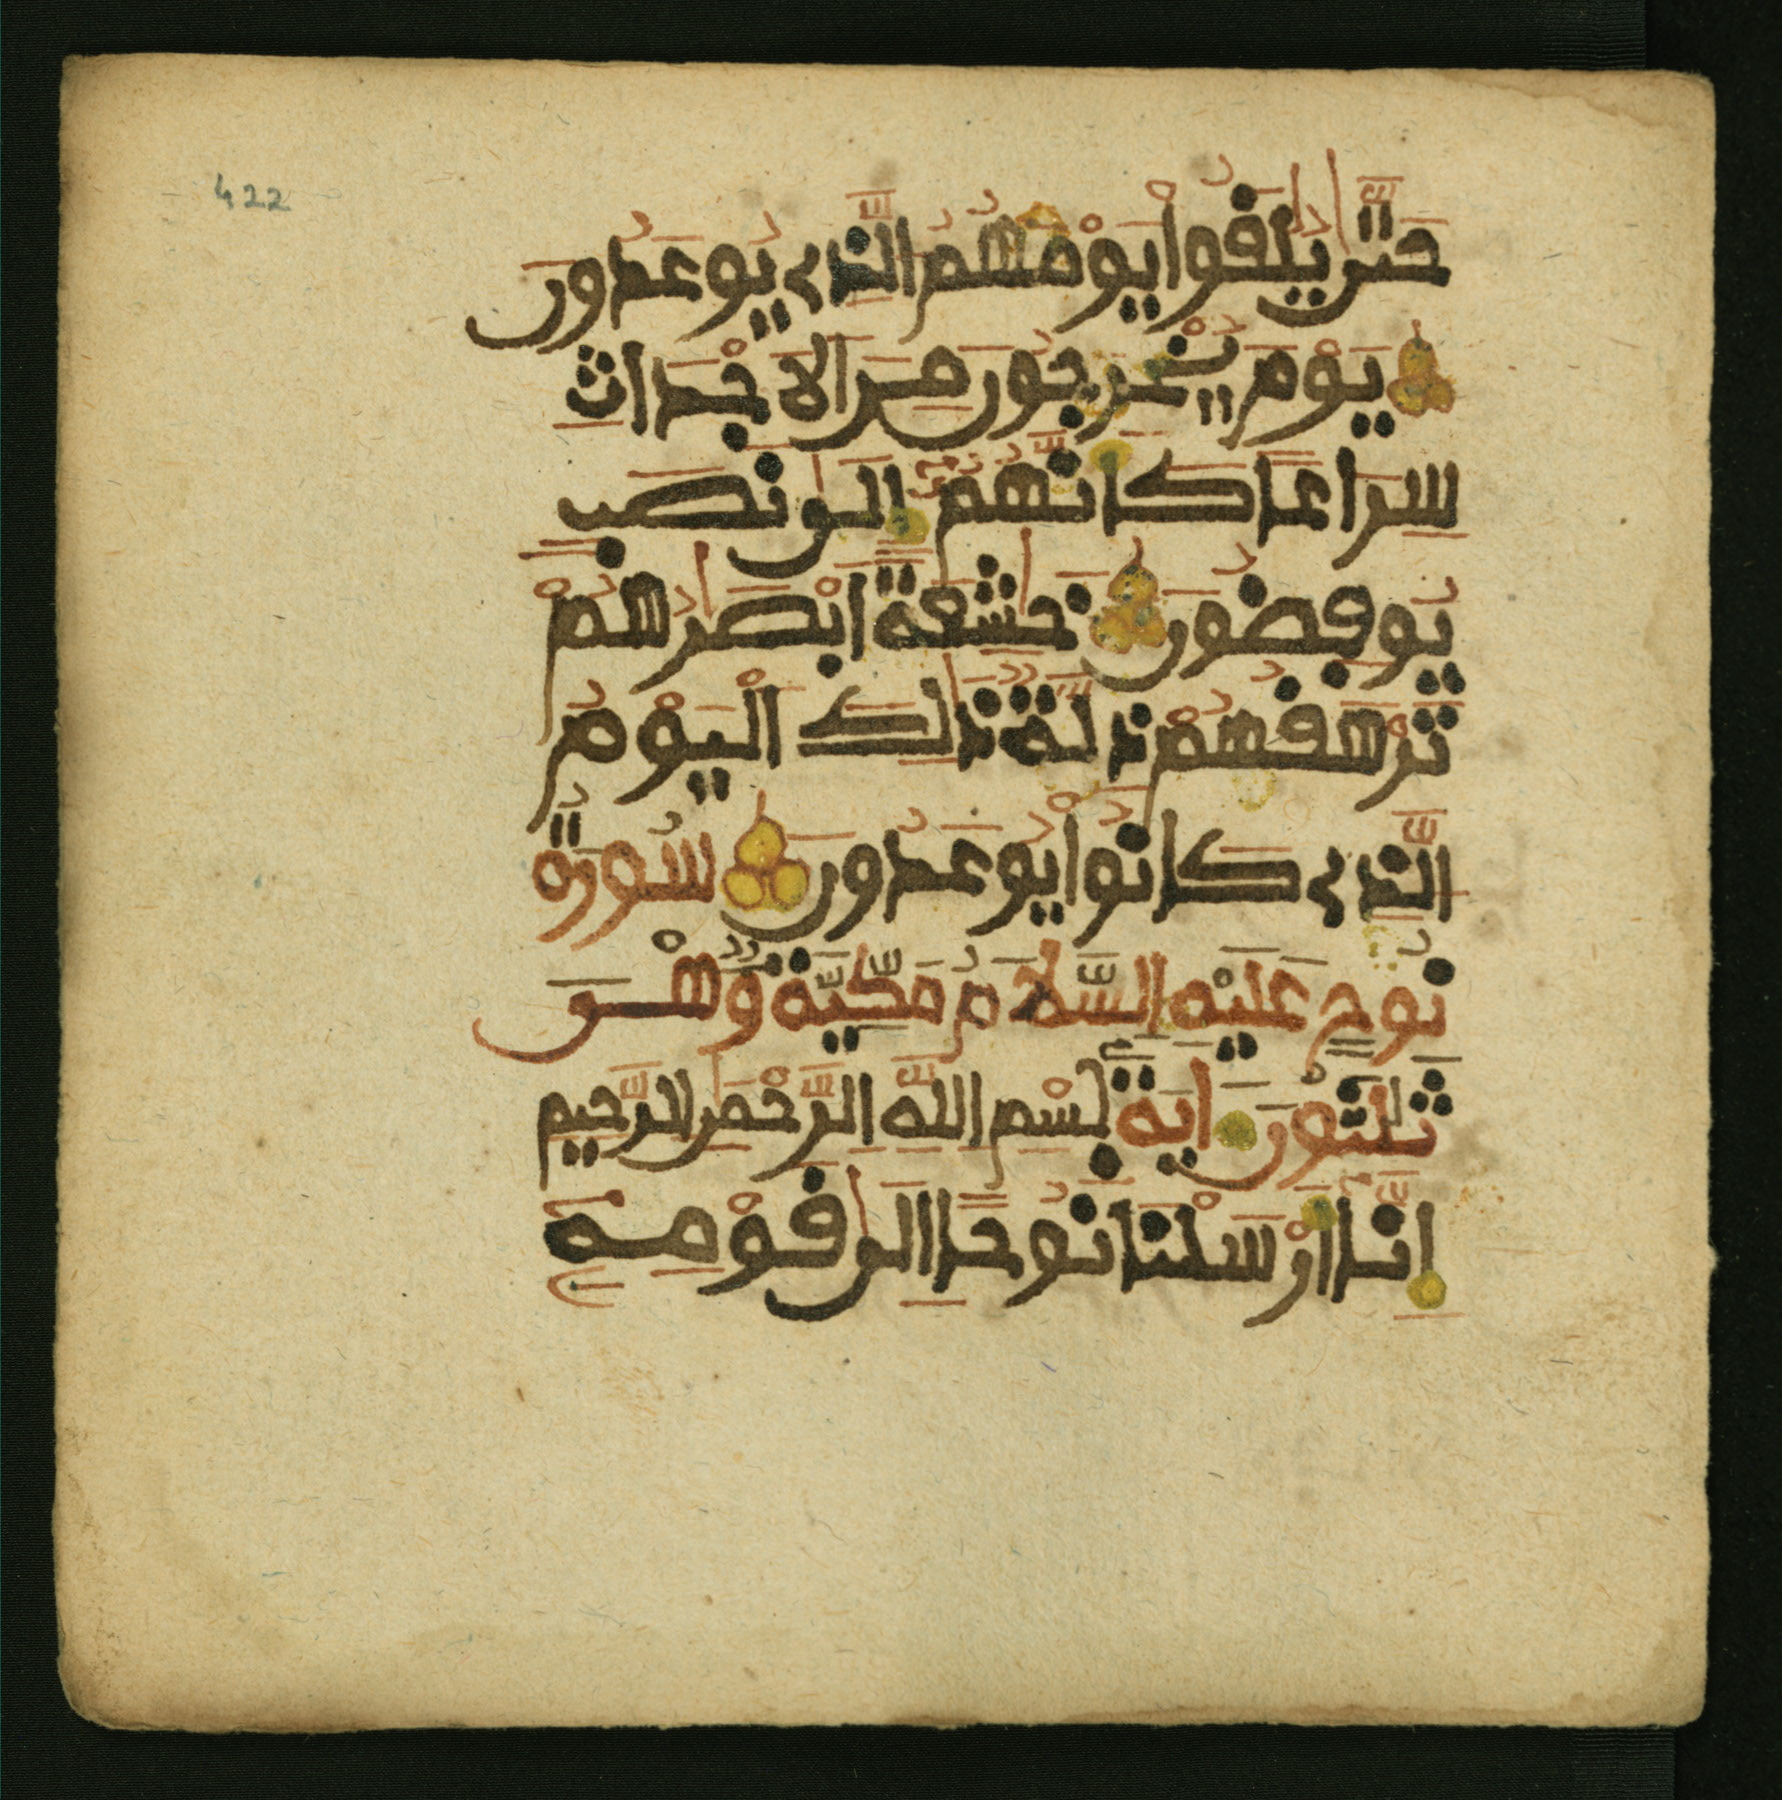 422
حَتَّىٰ يُلَٰقُواْ يَوْمَهُمُ الَّذِے يُوعَدُونَ
يَوْمَ يَخْرُجُونَ مِنَ الَاجْدَاثِ
سِرَاعاً كَأَنَّهُمُ إِلَىٰ نَصْبٍ
يُوفِضُونَ خَٰشِعَةً اَبْصَٰرُهُمْ
تَرْهَقُهُمْ ذِلَّةٌ ذَٰلِكَ الْيَوْمُ
الَّذِے كَانُواْ يُوعَدُونَ سُورَةُ
نُوحٍ عَلَيْهِ السَّلَامُ مَكِّيَّةٌ وَهْىَ
ثَلَٰثُونَ ءَايَةً بِسْمِ اللَّهِ الرَّحْمَٰنِ الرَّحِيمِ
إِنَّا أَرْسَلْنَا نُوحاً اِلَىٰ قَوْمِهِ